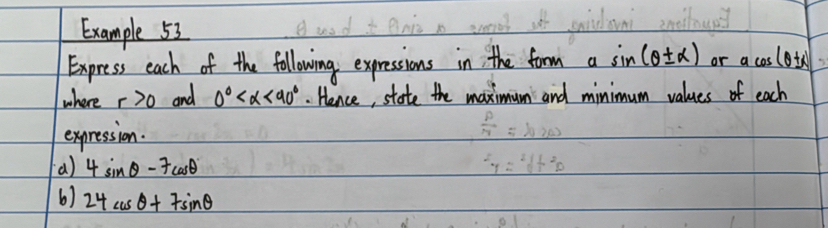 Example 53
Express each of the following expressions in the form a sin(θ±α) or a cos(θ±α)
where r>0 and 0°<α<90°. Hence, state the maximum and minimum values of each
expression.
a) 4 sinθ - 7cosθ
b) 24 cos θ + 7sinθ